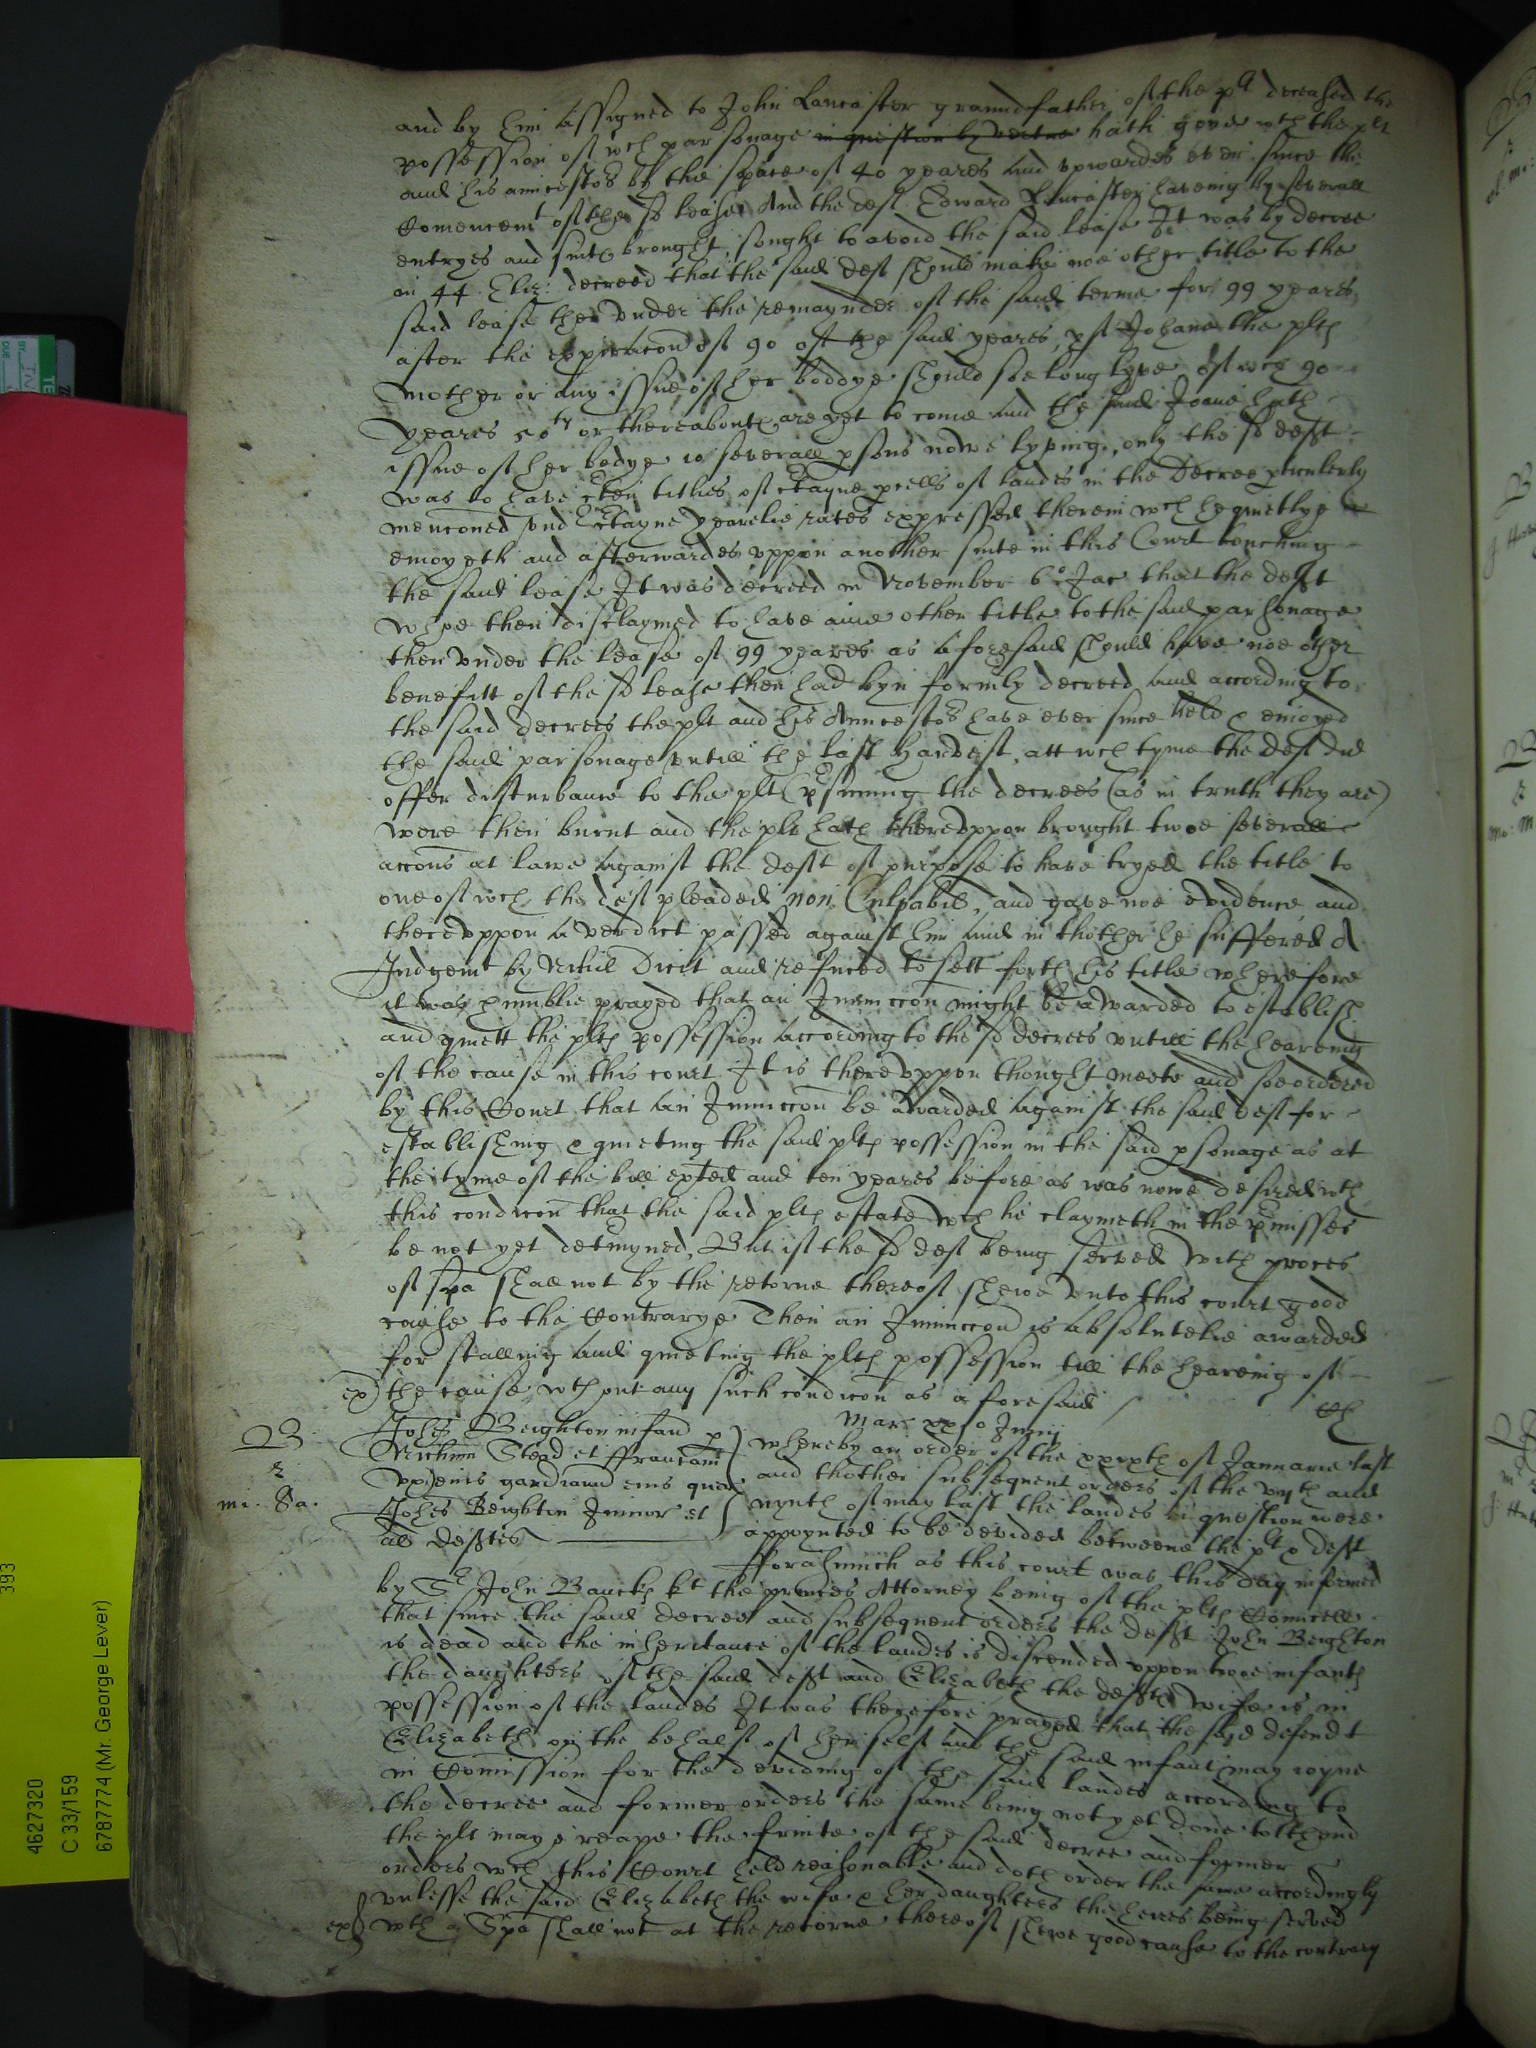 and by him assigned to John Lancaster grandfather of the plt deceased the
possession of wch parsonage in question by vertue hath gone wth the plt
and his auncestors by the space of 40 yeares and upwardes ever since the
Comencemt of the sd lease And the deft Edward Lancaster haveing by severall
entryes and suits brought sought to avoid the said lease It was by decree
in 44 Eliz: decreed that the said deft should make noe other title to the
said lease then under the remaynder of the said terme for 99 yeares
after the expiracon of 90 of the said yeares, yf Johane the plts
mother or any issue of her boddye should soe long lyve of wch 90
yeares 50ty or thereabouts are yet to come and the said Joane hath
issue of her bodye 10 severall psons nowe lyving, only the sd deft
was to have cten tithes of ctayne pcells of landes in the Decree pticulerly
menconed and ctayne yearelie rates expressed therein wch he quietlye
enioyeth and afterwardes uppon another suite in this Court touching
the said lease It was decreed in November 6o Jac that the deft
whoe then disclaymed to have anie other title to the said parsonage
then under the lease of 99 yeares as aforesaid should have noe other
benefitt of the sd lease then had byn formly decreed and according to
the said decrees the plt and his Auncestors have ever since held & enioyed
the said parsonage untill the last Harvest, att wch tyme the deft did
offer disturbance to the plt (psuming the decrees (as in truth they are)
were then burnt and the plt hath thereuppon brought twoe severall
accons at lawe against the deft of purpose to have tryed the title to
one of wch the deft pleaded non Culpabil, and gave noe evidence and
thereuppon a verdict passed against him and in thother he suffered A
Judgemt by Nihil Dicit and refuced to sett forth his title wherefore
it was humblie prayed that an Iniuncon might be awarded to establish
and quiett the plts possession according to the sd decrees untill the heareing
of the cause in this court It is thereuppon thought meete and soe ordered
by this Court that an Iniuncon be awarded against the said deft for
establishing & quieting the said plts possession in the said psonage as at
the tyme of the bill exhted and ten yeares before as was nowe desired wth
this condicon that the said plts estate wch he claymeth in the pmisses
be not yet detmyned, But if the sd deft being served with proces
of spa shall not by the retorne thereof shewe unto this court good
cause to the Contrarye Then an Iniunccon is absolutelie awarded
for stalling and quieting the plts possession till the heareing of
ex) the cause wthout any such condicon as aforesaid
Mar xxo Junij
B Johes Beighton infan p
Stead et ffranciam
uxorem gardianu eius quer
r
mi. Sa. Johes Beighton Junior et
al deftes
whereby an order of the xxixth of Januarie last
and thother subsequent orders of the vijth and
nynth of may last the landes in question were
appoynted to be devided betweene the plt & deft
fforasmuch as this court was this day informed
by Sr John Bancks kt the princes Attorney being of the plts Councell
that since the said decree and subsequent orders the deft John Beighton
is dead and the inheritance of the landes is discended uppon twoe infants
the daughters of the said deft and Elizabeth the defts wife is in
possession of the landes It was therefore prayed that the said defendt
Elizabeth on the behalf of her self and the said infants may ioyne
in Comission for the deviding of the said landes according to
the decree and former orders the same being not yet done to thend
the plt maye reape the fruite of the said decree and former
orders wch this Court held reasonable and doth order the same accordingly
unlesse the said Elizabeth the wife & her daughters the heires being served
ex) wth a Spa shall not at the retorne thereof shewe good cause to the contrary
393
4627320
C 33/159
6787774 (Mr. George Lever)